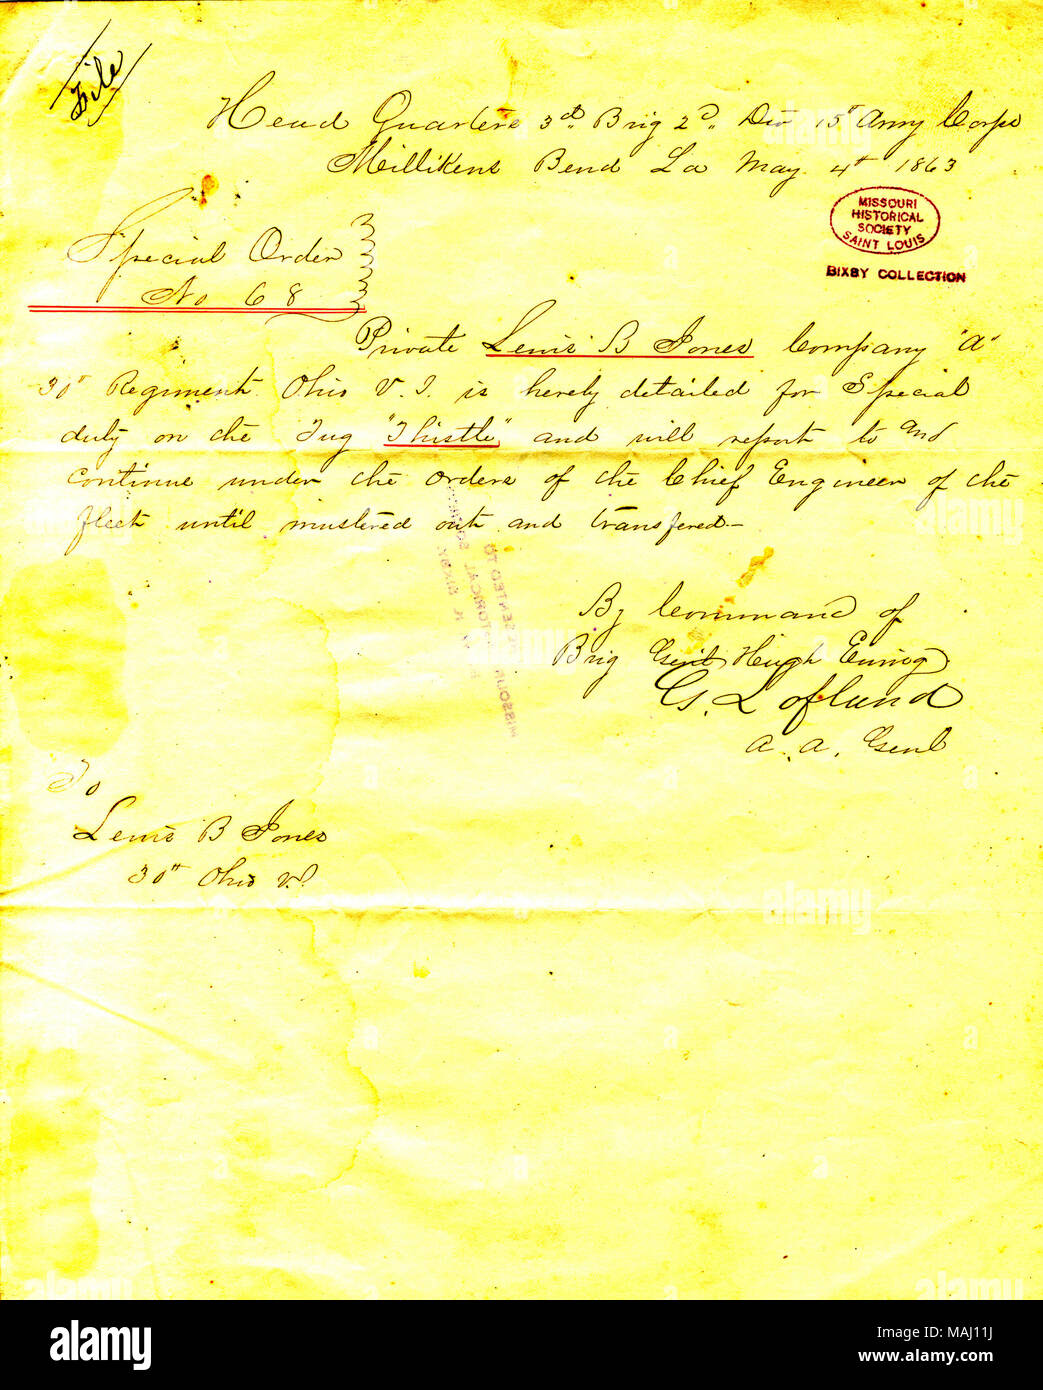 File
Head Quarters 3d. Brig 2d. Div 15th Army Corps
Millikens Bend La May 4th 1863
MISSOURI
HISTORICAL
SOCIETY
SAINT LOUIS
BIXBY COLLECTION
Special Order
No 68
Private Lewis B Jones Company "A"
30th Regiment Ohio V. I. is hereby detailed for Special
duty on the Tug "Thistle" and will report to and
continue under the orders of the Chief Engineer of the
fleet until mustered out and transfered—
By Command of
Brig Genl Hugh Ewing
G. Lofland
A. A. Genl
To
Lewis B Jones
30th Ohio V.I.
PRESENTED TO
MISSOURI HISTORICAL SOCIETY
K. BIXBY
alamy
Image ID: MAJ11J
www.alamy.com